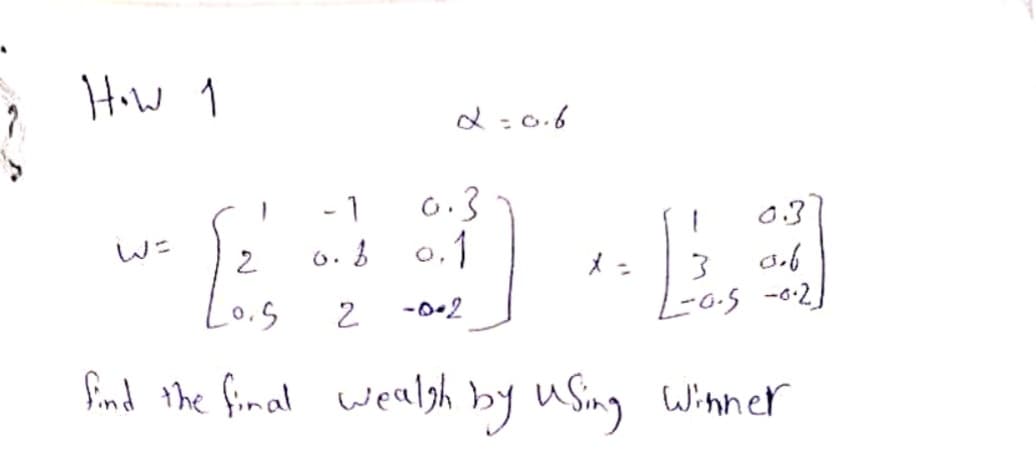 H.W 1
α = 0.6
W = [ 1 -1 0.3
2 0. 0.1
0.5 2 -0.2 ]
x = [ 1 0.3
3 0.6
-0.5 -0.2 ]
find the final by using winner